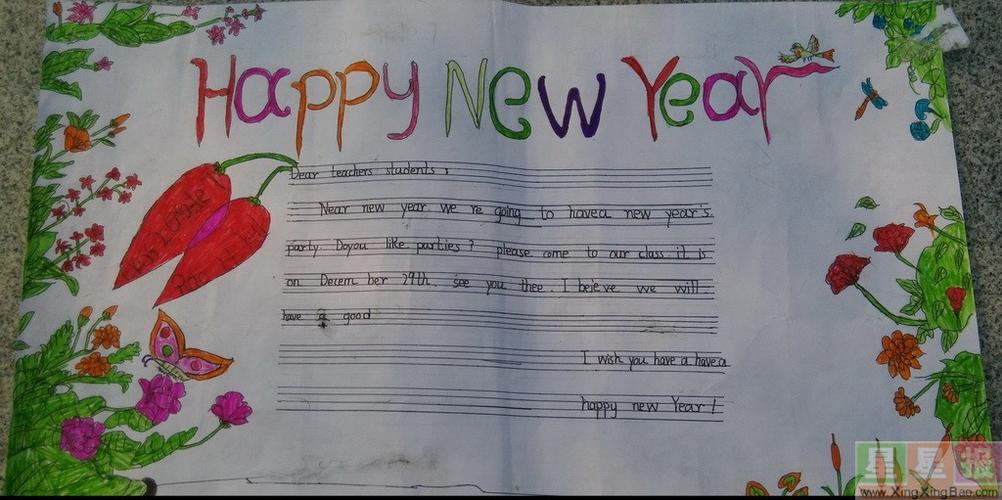 Happy New Year
Dear teachers students :
Near new year. we re going to havea new year's
party Doyou like parties? please come to our class it is
on Decem ber 29th. see you thee. I beieve we will
have a good
I wish you have a have a
happy new Year!
星星报
www.XingXingBao.com